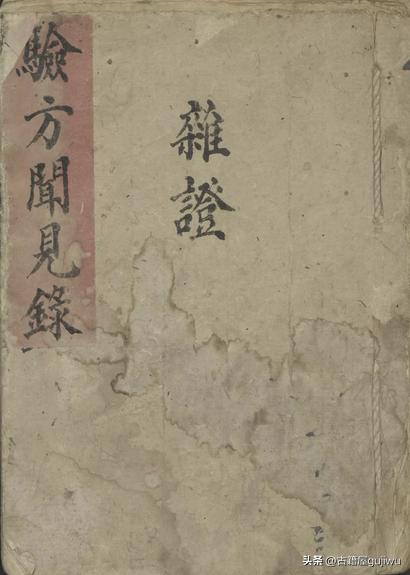 驗方聞見錄
雜證
头条 @古籍屋gujiwu